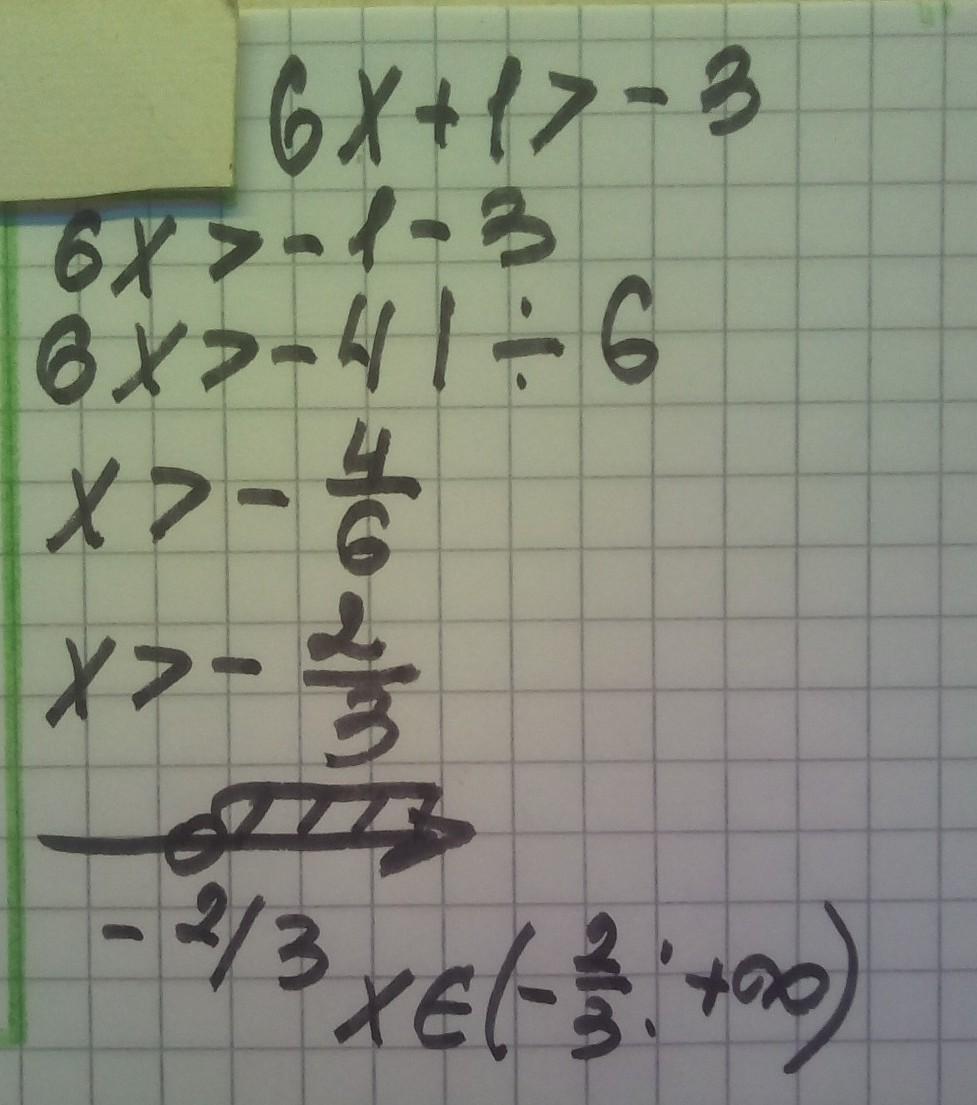 6x+1>-3
6x>-1-3
6x>-4|÷6
x>-4/6
x>-2/3
-2/3
x∈(-2/3; +∞)